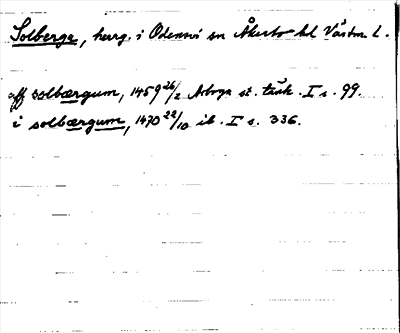 Solberge, herrg. i Odensvi sn Åkerbo hd Västm L.
aff solbærgum, 1459 26/2 Arboga st. tänk. I s. 99.
i solbærgum, 1470 22/10 ib. I s. 336.